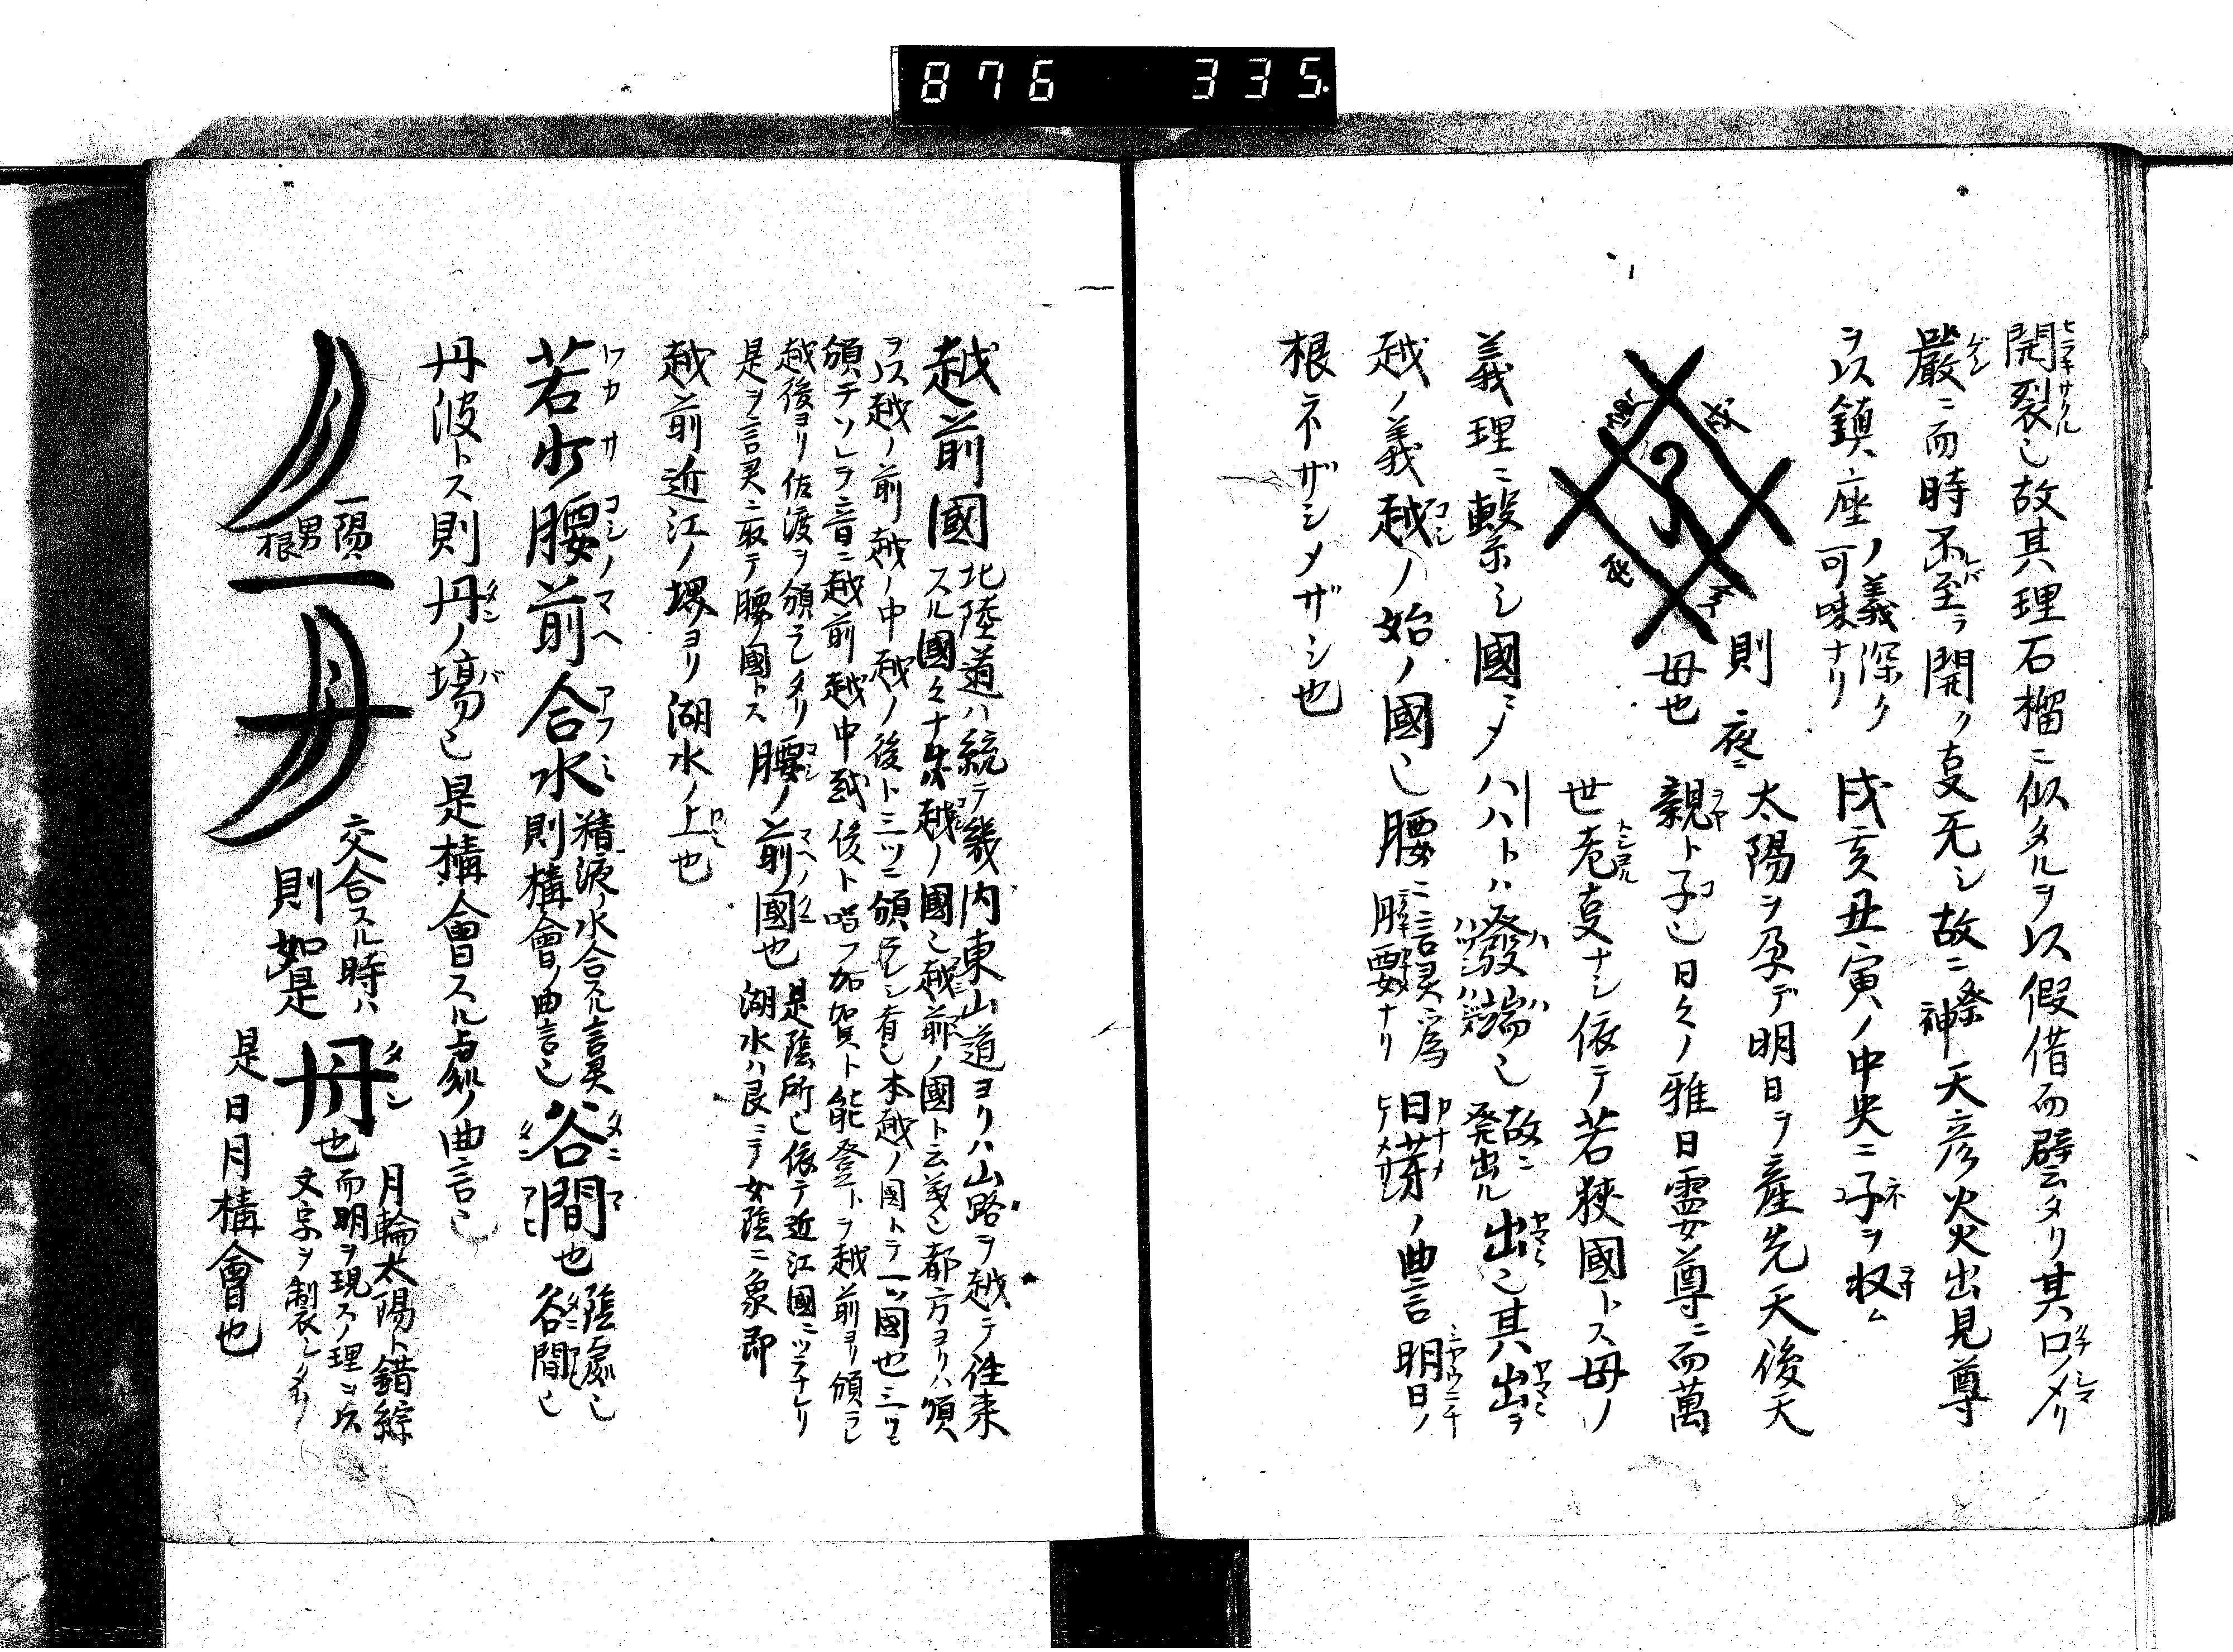 876 335.
開裂也故其理石榴ニ似タルヲ以假借而譬云タリ其口ノメリ
ヒラキサクル
嚴ニ而時不至ラ開ク叓无シ故ニ祭神天彦火火出見尊
ヲ以鎮座ノ義深ク可味ナリ
戌亥丑寅ノ中央ニ子ヲ収ム
戌
亥
丑
寅
子
則母也
夜ニ太陽ヲ孕デ明日ヲ産先天後天
親ト子也日々ノ雅日霊尊ニ而萬
世老叓ナシ依テ若狭國トス母ノ
義理ニ繋シ國ニメハハトハ發端也故ニ発出ル出也其出ヲ
越ノ義越ノ始ノ國也腰ニ言灵為月要ナリ日芽ノ曲言明日ノ
根ネザシメザシ也
越前國
北陸道ハ統テ畿内東山道ヨリハ山路ヲ越テ往来
スル國々ナ故越ノ國也越前ノ國ト云義也都方ヨリハ頒
ヲ以越ノ前越ノ中越ノ後ト三ツニ頒シ者也本越ノ國トテ一ツ國也三ツモ
頒チソレヲ音ニ越前越中越後ト唱フ加賀ト能登トヲ越前ヨリ頒ラレ
越後ヨリ佐渡ヲ頒ラレタリ
是ヲ言灵ニ取テ腰ノ國トス
腰ノ前ノ國也
コシ マヘノクニ
是陰所也依テ近江國ニツラナレリ
湖水ハ艮ニテ女陰ニ象即
越前近江ノ堺ヨリ湖水ノ上也
若少腰前合水
ワカサ コシノマヘ アフミ
精液ノ水合スル言灵
則構會ノ曲言也
谷間也
タニマ
陰處也
谷間也
丹波トス則丹ノ場也是構會スルヲ曲言也
一陽ハ男根
一
丹
交合スル時ハ
則如是
丹也
タン
月輪太陽ト錯綜
而明ヲ現スノ理ヲ以
文字ヲ製シタリ
是日月構會也